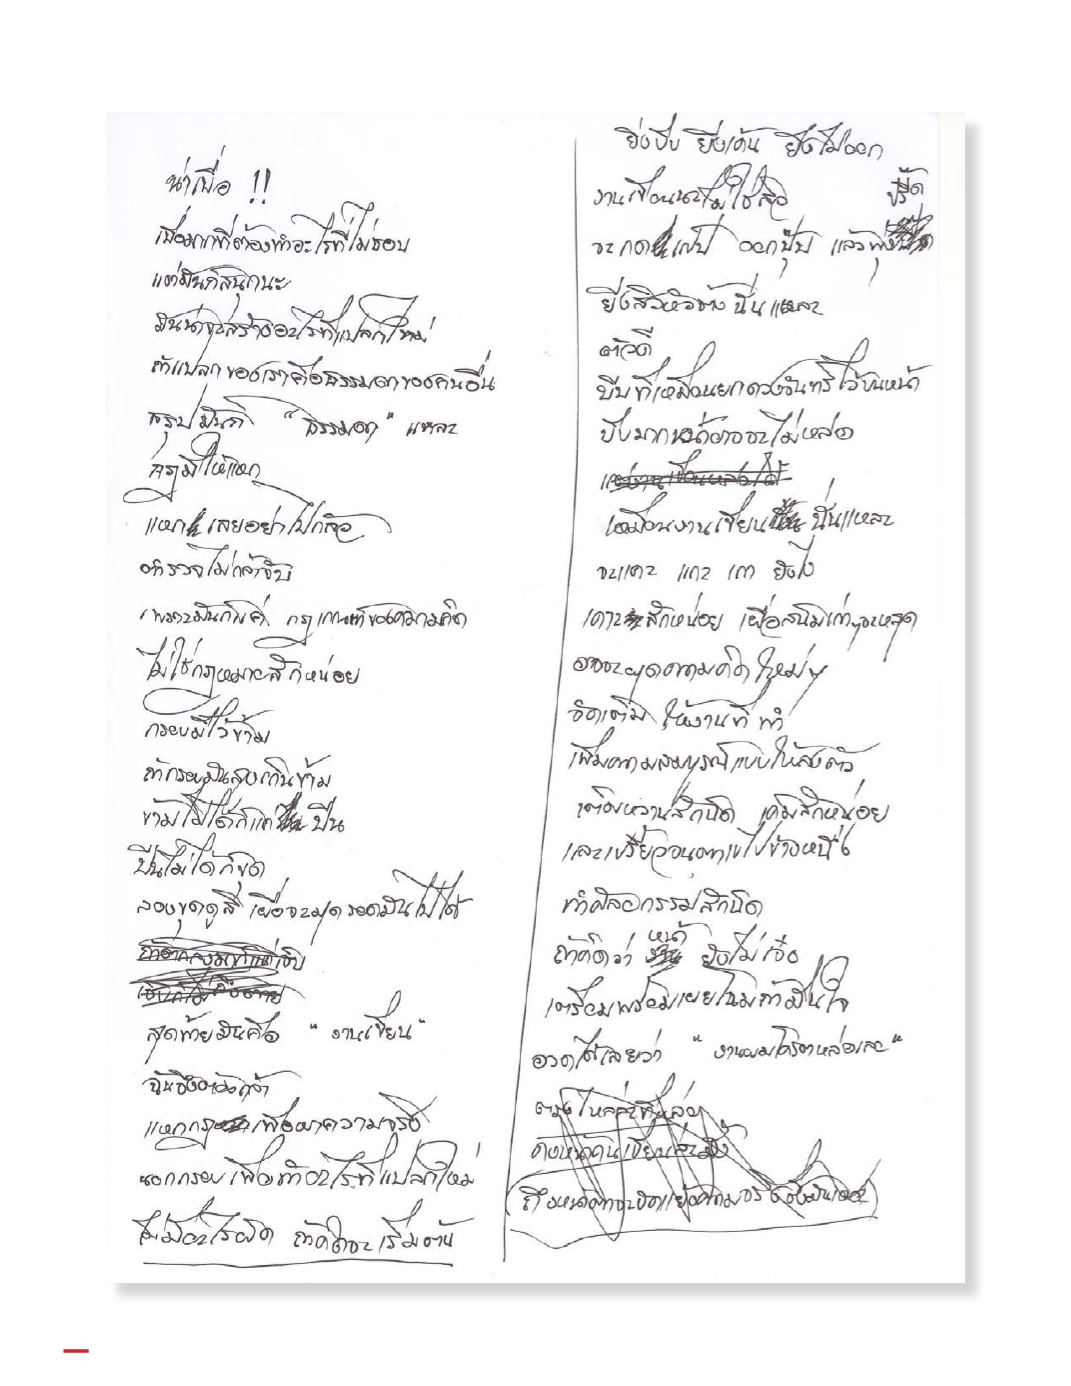 น่าเบื่อ !!
เบื่อมากที่ต้องทำอะไรที่ไม่ชอบ
แต่มันก็สนุกนะ
มันน่าจะสร้างอะไรที่แปลกใหม่
ถ้าแปลกของเราคือธรรมดาของคนอื่น
สรุปมันก็ "ธรรมดา" แหละ
กฎมีให้แหก
แหก เลยอย่าไปกลัว
ตำรวจไม่กล้าจับ
เพราะมันก็แค่ กฎเกณฑ์ของความคิด
ไม่ใช่กฎหมายสักหน่อย
กรอบมีไว้ข้าม
ถ้ากรอบมันสูงเกินข้าม
ข้ามไม่ได้ก็แค่ ปีน
ปีนไม่ได้ก็ขุด
ลองขุดดูสิ เผื่อจะมุดรอดมันไปได้
สุดท้ายมันคือ "งานเขียน"
ฉันจึงต้องกล้า
แหกกฎ เพื่อหาความจริง
นอกกรอบ เพื่อทำอะไรที่แปลกใหม่
ไม่มีอะไรผิด ถ้าคิดจะเริ่มต้น
ยิ่งบีบ ยิ่งเค้น ยิ่งไม่ออก
งานเขียนนะไม่ใช่สิว
จะกด แป๊ป ออกปุ๊ป แล้วพุ่งปรี๊ด
ยังสิวหัวช้าง นี่นแหละ
ตัวดี
บีบที่เหมือนยกดวงจันทร์ไว้บนหน้า
บีบมากหน้าอาจจะไม่หล่อ
เหมือนงานเขียน นั่นแหละ
จะแคะ แกะ เกา ยังไง
เคาะ สักหน่อย เผื่อสนิมเก่าๆจะหลุด
อาจจะผุดความคิดใหม่ๆ
จัดเต็ม ให้งานที่ทำ
เพิ่มความสมบูรณ์แบบให้ลงตัว
เติมหวานสักนิด เค็มสักหน่อย
และเปรี้ยวจนตาเขไปข้างหนึ่ง
ทำศัลยกรรมสักนิด
ถ้าคิดว่า หน้า ยังไม่เจ๋ง
เตรียมพร้อมเผยโฉมถ้ามั่นใจ
อวดได้เลยว่า "งานผมโครตหล่อเลย"